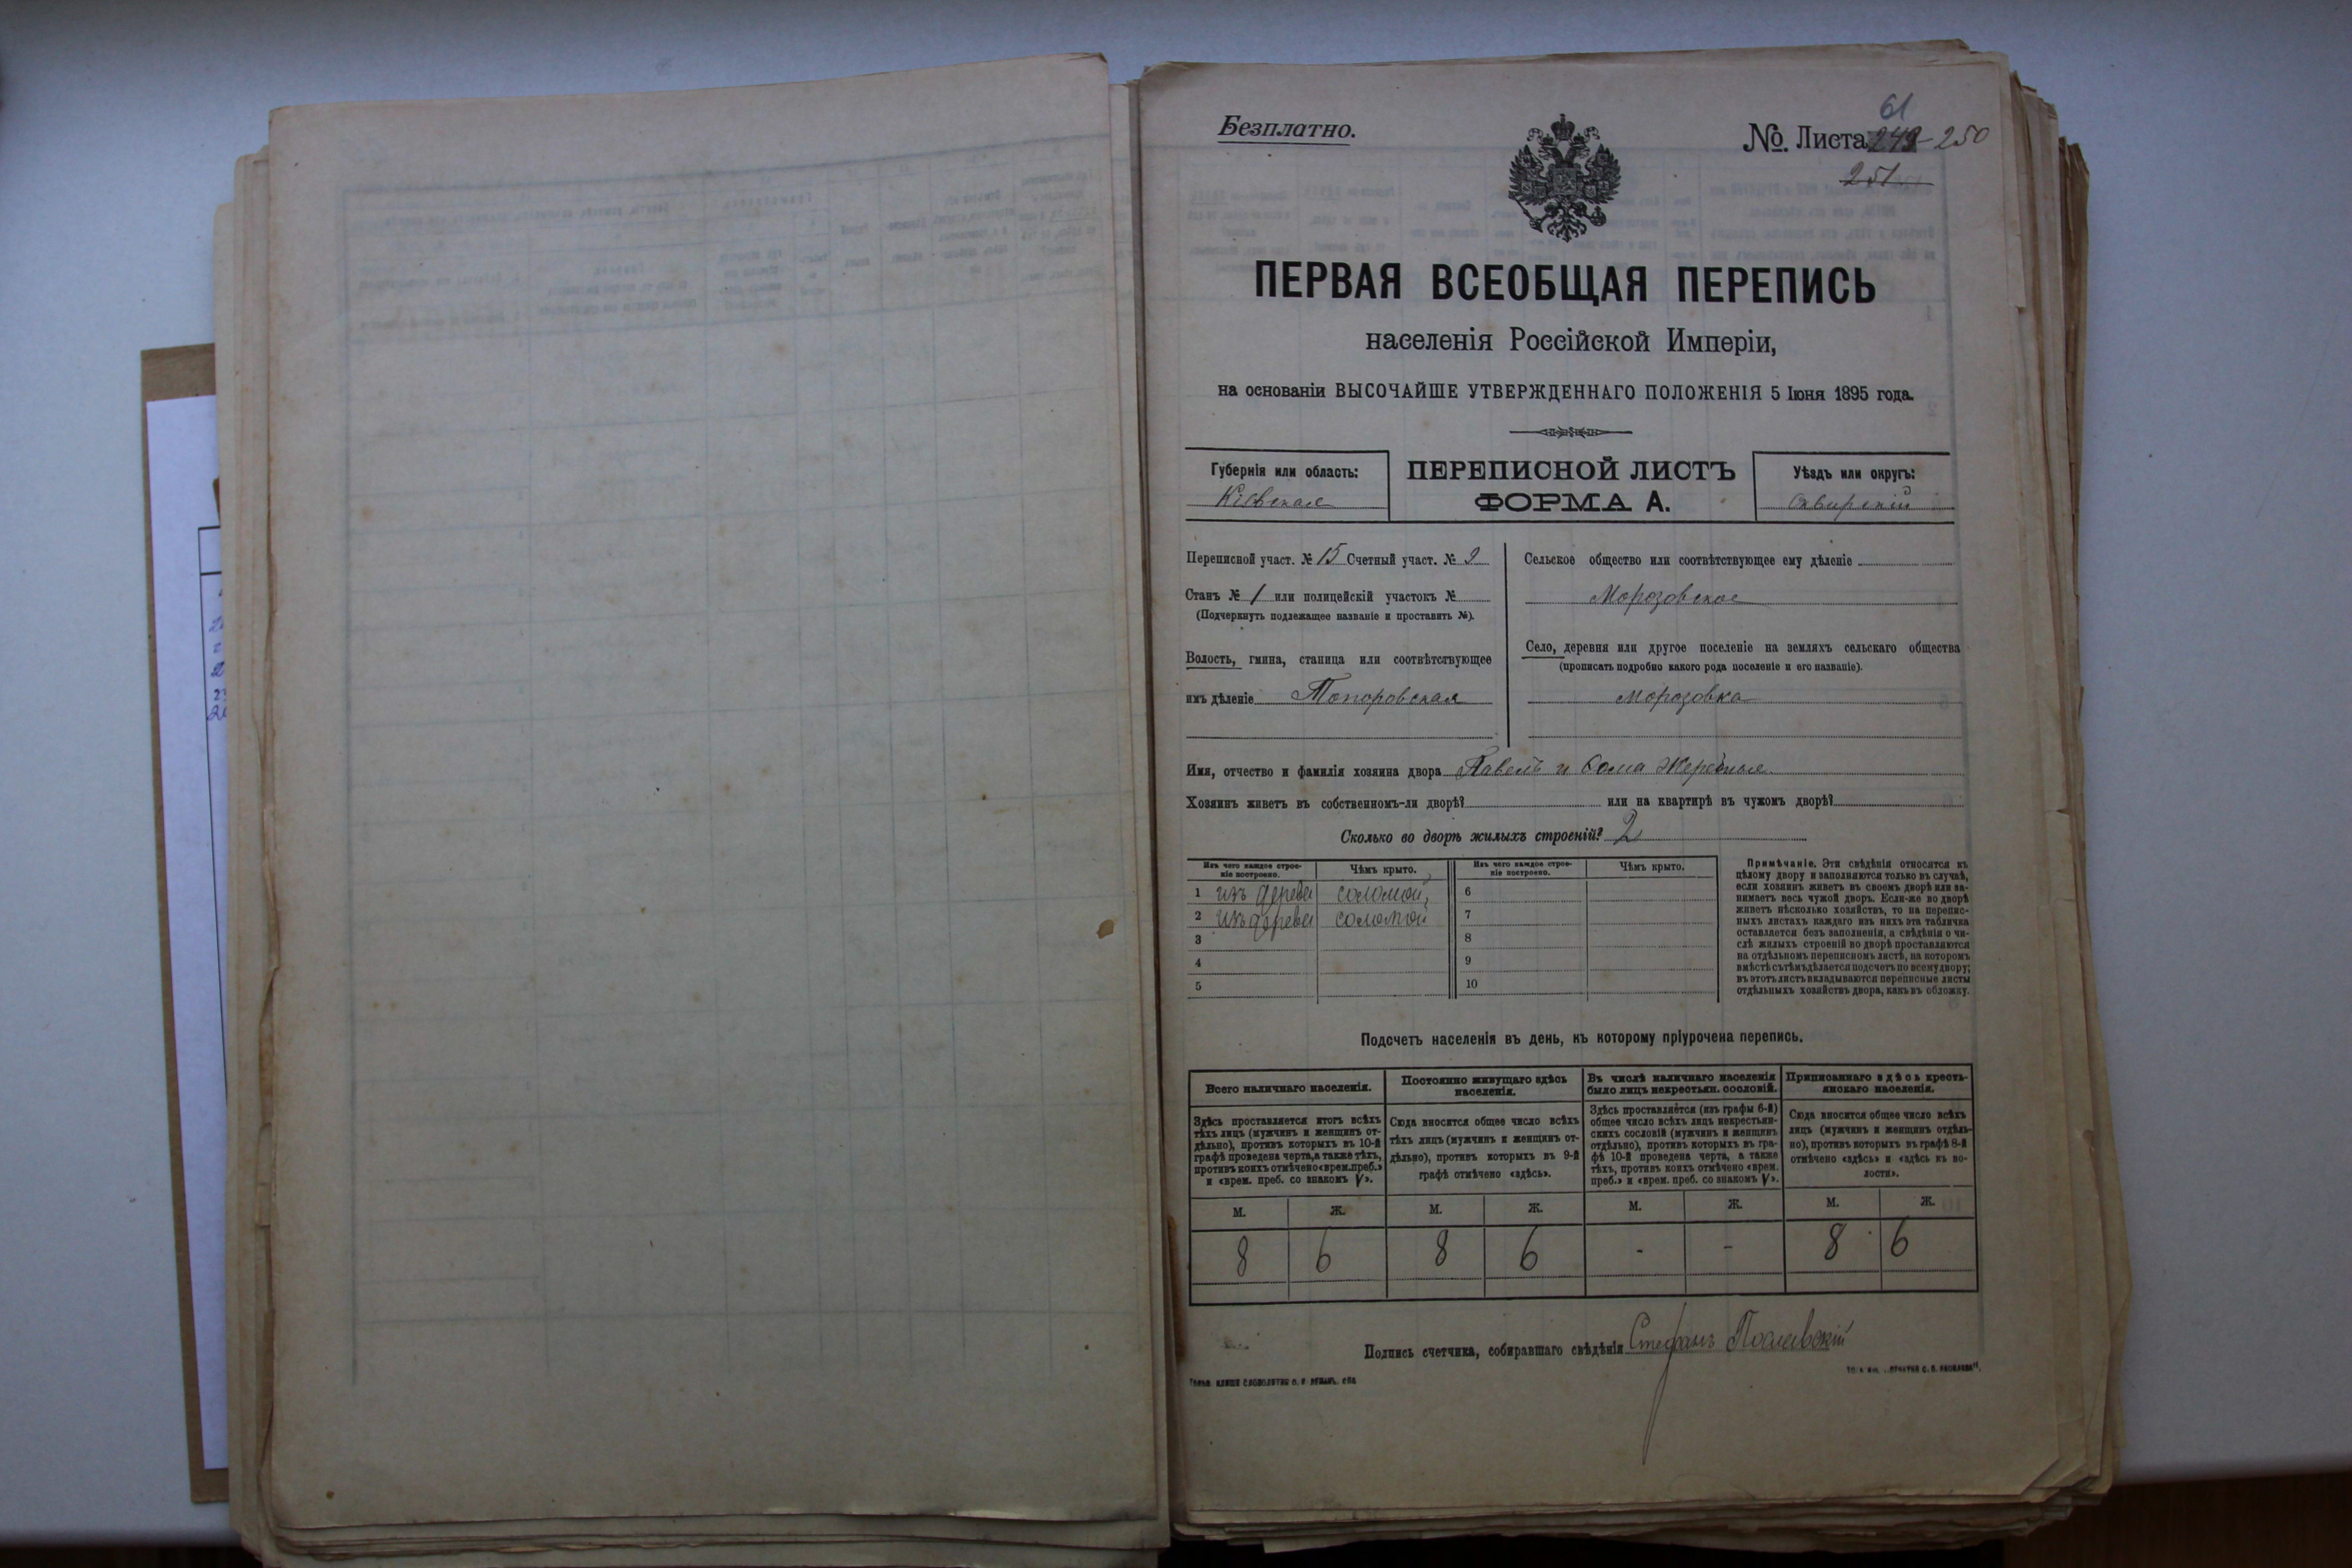 61
Безплатно.
№ Листа 249 - 250
251
ПЕРВАЯ ВСЕОБЩАЯ ПЕРЕПИСЬ
населенія Россійской Имперіи,
на основаніи ВЫСОЧАЙШЕ УТВЕРЖДЕННАГО ПОЛОЖЕНІЯ 5 Іюня 1895 года.
Губернія или область:
Кіевская
ПЕРЕПИСНОЙ ЛИСТЪ
ФОРМА А.
Уѣздъ или округъ:
Сквирскій
Переписной участ. № 15 Счетный участ. № 2
Станъ № 1 или полицейскій участокъ №
(Подчеркнуть подлежащее названіе и проставить №).
Волость, гмина, станица или соотвѣтствующее
имъ дѣленіе Топоровская
Сельское общество или соотвѣтствующее ему дѣленіе
Морозовское
Село, деревня или другое поселеніе на земляхъ сельскаго общества
(прописать подробно какого рода поселеніе и его названіе).
Морозовка
Имя, отчество и фамилія хозяина двора Павелъ и Фома
Хозяинъ живетъ въ собственномъ-ли дворѣ? или на квартирѣ въ чужомъ дворѣ?
Сколько во дворѣ жилыхъ строеній? 2
Изъ чего каждое строе-
ніе построено.
Чѣмъ крыто.
Изъ чего каждое строе-
ніе построено.
Чѣмъ крыто.
1 изъ дерева соломой 6
2 изъ дерева соломой 7
3 8
4 9
5 10
Примѣчаніе. Эти свѣдѣнія относятся къ
цѣлому двору и заполняются только въ случаѣ,
если хозяинъ живетъ въ своемъ дворѣ или за-
нимаетъ весь чужой дворъ. Если-же во дворѣ
живетъ нѣсколько хозяйствъ, то на перепис-
ныхъ листахъ каждаго изъ нихъ эта табличка
оставляется безъ заполненія, а свѣдѣнія о чи-
слѣ жилыхъ строеній во дворѣ проставляются
на отдѣльномъ переписномъ листѣ, на которомъ
вмѣстѣ съ тѣмъ дѣлается подсчетъ по всему двору;
въ этотъ листъ вкладываются переписные листы
отдѣльныхъ хозяйствъ двора, какъ въ обложку.
Подсчетъ населенія въ день, къ которому пріурочена перепись.
Всего наличнаго населенія.
Постоянно живущаго здѣсь
населенія.
Въ числѣ наличнаго населенія
было лицъ некрестьян. сословій.
Приписаннаго здѣсь кресть-
янскаго населенія.
Здѣсь проставляется итогъ всѣхъ
тѣхъ лицъ (мужчинъ и женщинъ от-
дѣльно), противъ которыхъ въ 10-й
графѣ проведена черта, а также тѣхъ,
противъ коихъ отмѣчено «врем. преб.»
и «врем. преб. со знакомъ V».
Сюда вносится общее число всѣхъ
тѣхъ лицъ (мужчинъ и женщинъ от-
дѣльно), противъ которыхъ въ 9-й
графѣ отмѣчено «здѣсь».
Здѣсь проставляется (изъ графы 6-й)
общее число всѣхъ лицъ некрестьян-
скихъ сословій (мужчинъ и женщинъ
отдѣльно), противъ которыхъ въ гра-
фѣ 10-й проведена черта, а также
тѣхъ, противъ коихъ отмѣчено «врем.
преб.» и «врем. преб. со знакомъ V».
Сюда вносится общее число всѣхъ
лицъ (мужчинъ и женщинъ отдѣль-
но), противъ которыхъ въ графѣ 8-й
отмѣчено «здѣсь» и «здѣсь къ во-
лости».
М. Ж. М. Ж. М. Ж. М. Ж.
8 6 8 6 - - 8 6
Подпись счетчика, собиравшаго свѣдѣнія Стефанъ